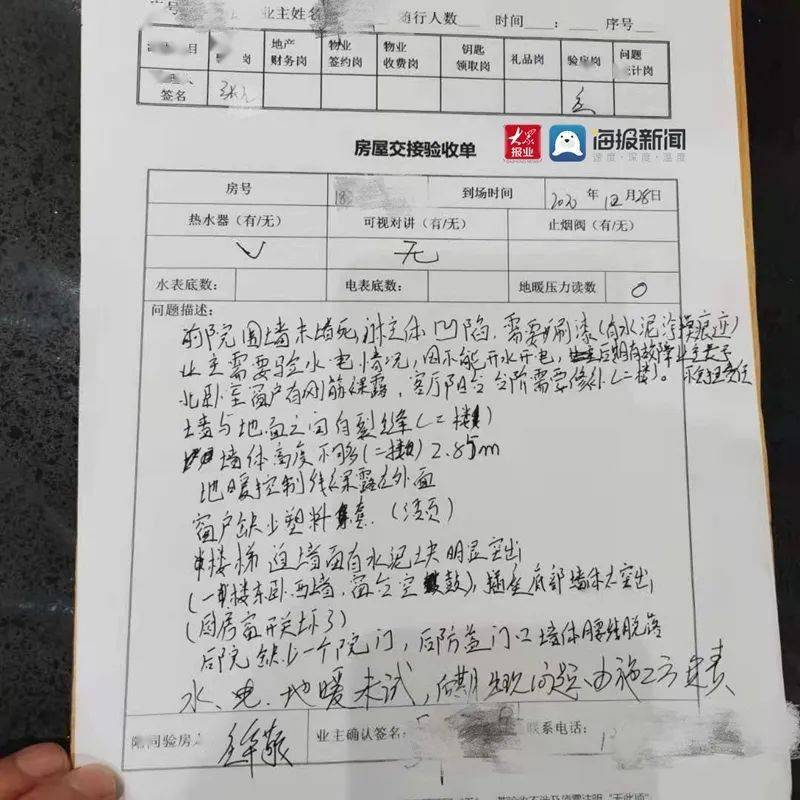 业主姓名 随行人数 时间 : 序号
目 岗 地产财务岗 物业签约岗 物业收费岗 钥匙领取岗 礼品岗 验房岗 问题统计岗
签名
大众报业 海报新闻
速度·深度·温度
房屋交接验收单
房号 18 到场时间 2020年12月28日
热水器（有/无） 可视对讲（有/无） 止烟阀（有/无）
√ 无
水表底数： 电表底数： 地暖压力读数 0
问题描述：
前院围墙未堵死，主体凹陷，需要刷漆（有水泥涂摸痕迹）
业主需要验水电情况，因不能开水开电，后期有故障业主
北卧室窗户有钢筋裸露，客厅阳台台阶需要修补（二楼）。承担责任
墙与地面之间有裂缝（二楼）
墙体高度不够（二楼）2.85m
地暖控制线裸露在外面
窗户缺少塑料
楼梯 墙面有水泥块明显突出
（一楼东卧西墙，窗台空鼓），插座底部墙体太突出
（厨房窗开关坏了）
后院缺少一个院门，后防盗门口墙体腰线脱落
水、电、地暖未试，后期出现问题由施工方负责
陪同验房人 业主确认签名： 联系电话：